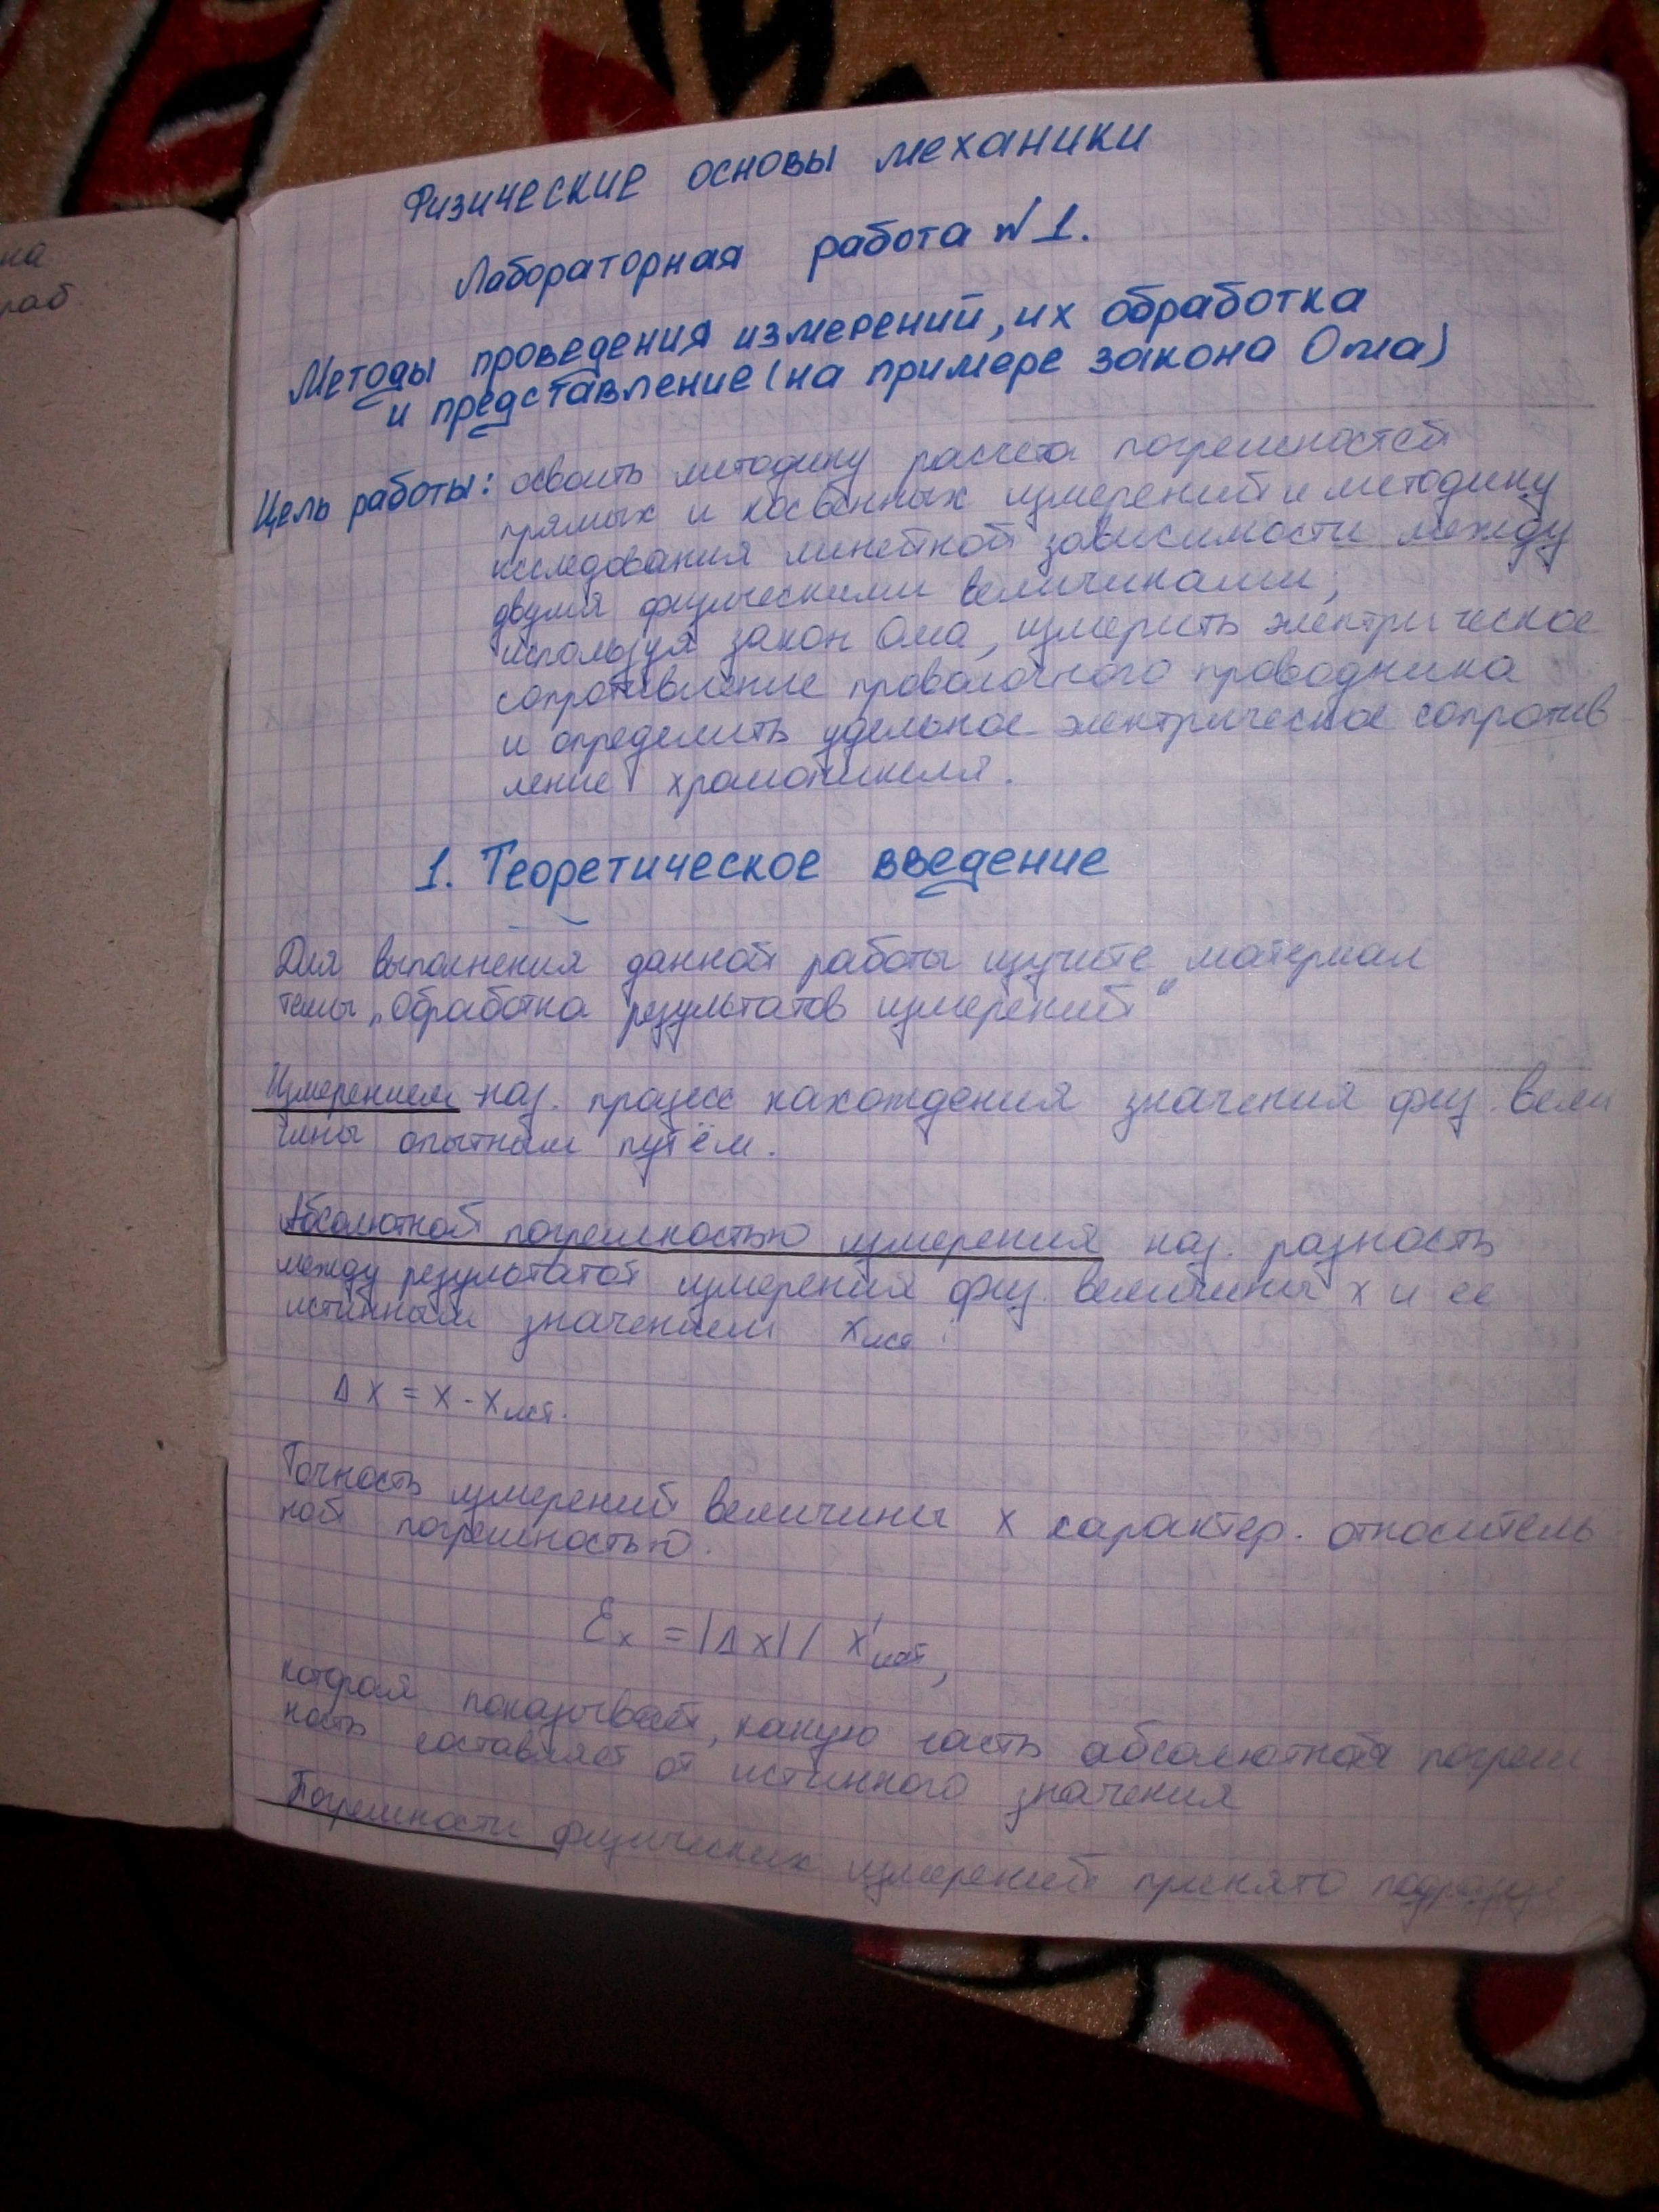 на
раб.
Физические основы механики
Лабораторная работа №1.
Методы проведения измерений, их обработка
и представление (на примере закона Ома)
Цель работы: освоить методику расчета погрешностей
прямых и косвенных измерений и методику
исследования линейной зависимости между
двумя физическими величинами;
используя закон Ома, измерить электрическое
сопротивление проволочного проводника
и определить удельное электрическое сопротив
ление хромоникеля.
1. Теоретическое введение
Для выполнения данной работы изучите материал
темы „Обработка результатов измерений“
Измерением наз. процесс нахождения значения физ. вели
чины опытным путём.
Абсолютной погрешностью измерения наз. разность
между результатом измерения физ. величины x и ее
истинным значением xист :
Δ x = x - xист.
Точность измерений величины x характер. относитель
ной погрешностью.
Ɛx = |Δ x| / xист,
которая показывает, какую часть абсолютной погреш
ность составляет от истинного значения
Погрешности физических измерений принято подразде